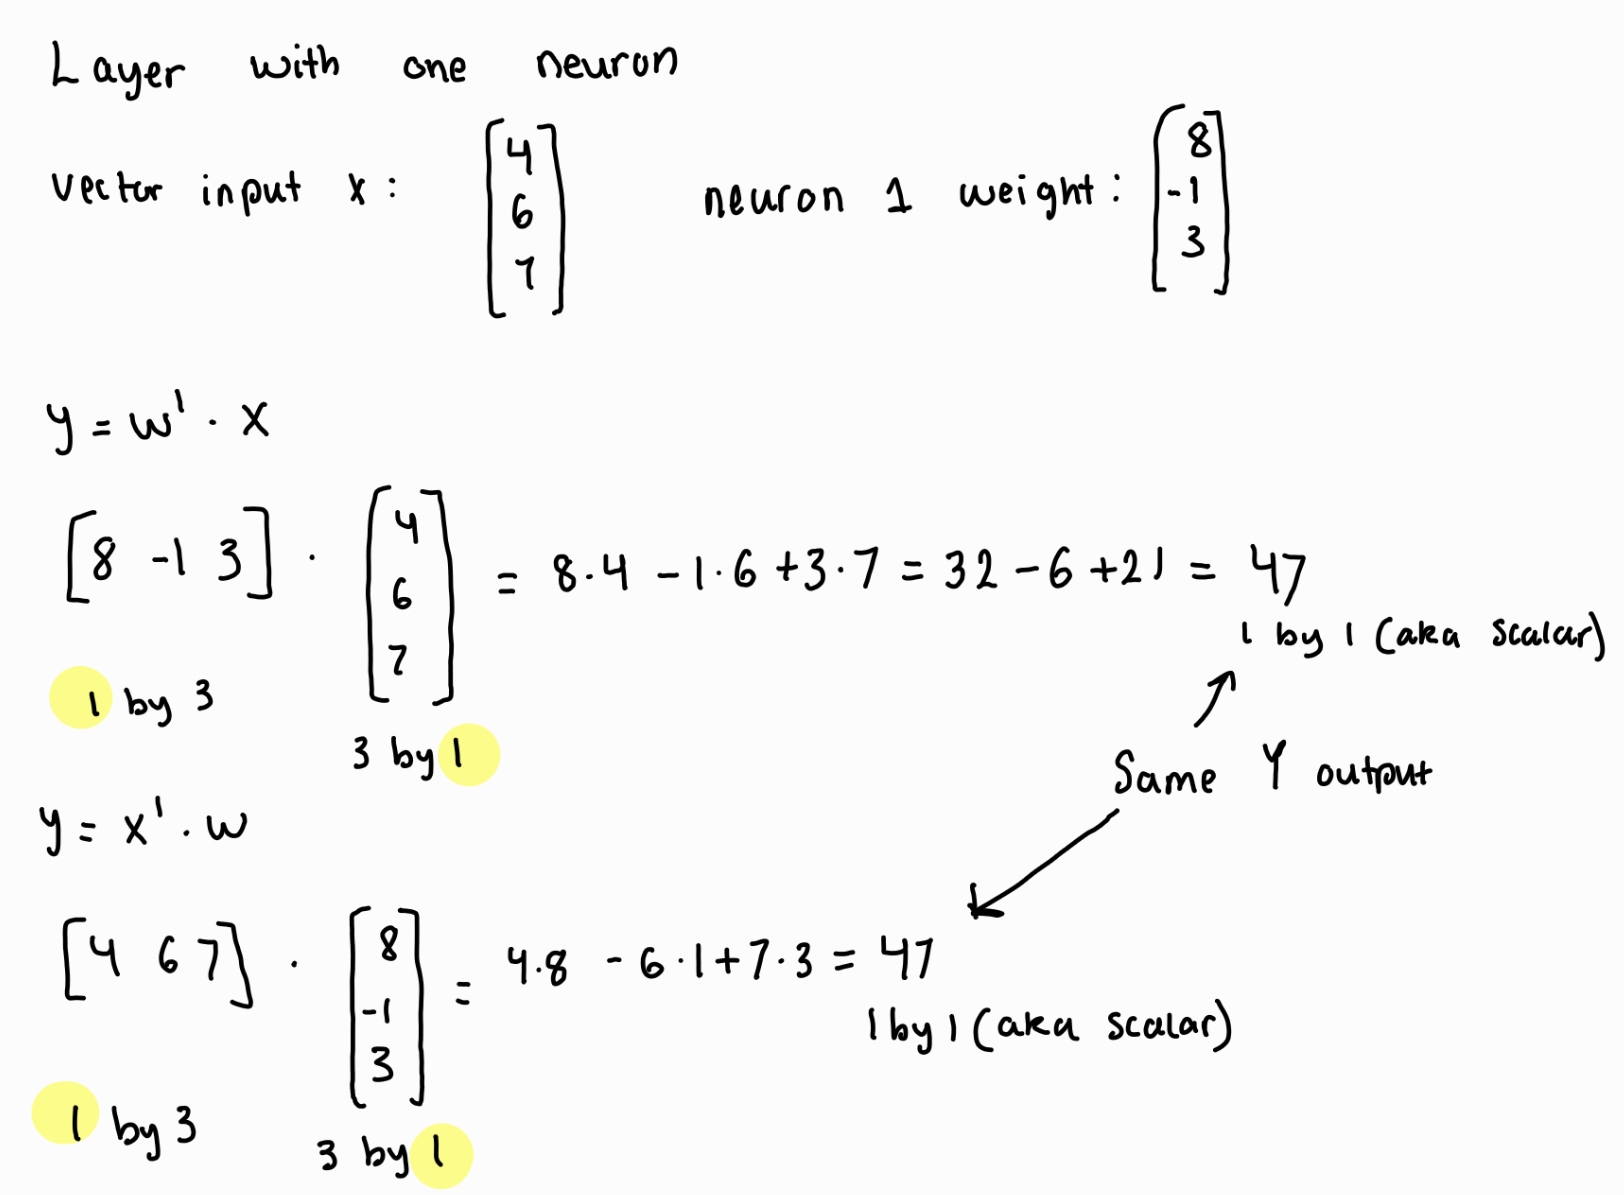 Layer with one neuron
vector input x: [4 6 7] neuron 1 weight: [8 -1 3]
y = w' · x
[8 -1 3] · [4 6 7] = 8·4 - 1·6 + 3·7 = 32 - 6 + 21 = 47
1 by 1 (aka scalar)
1 by 3
3 by 1
Same Y output
y = x' · w
[4 6 7] · [8 -1 3] = 4·8 - 6·1 + 7·3 = 47
1 by 1 (aka scalar)
1 by 3
3 by 1